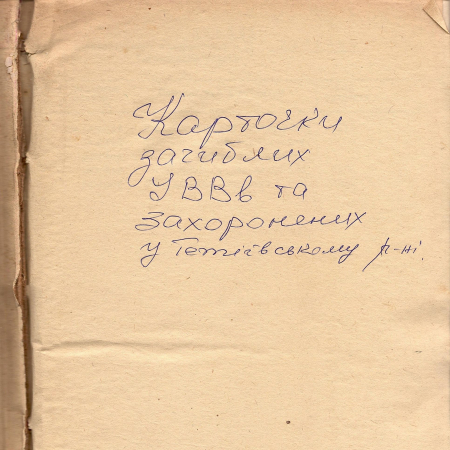 Карточки
загиблих
у ВВв та
захоронених
у Тетіївському р-ні.